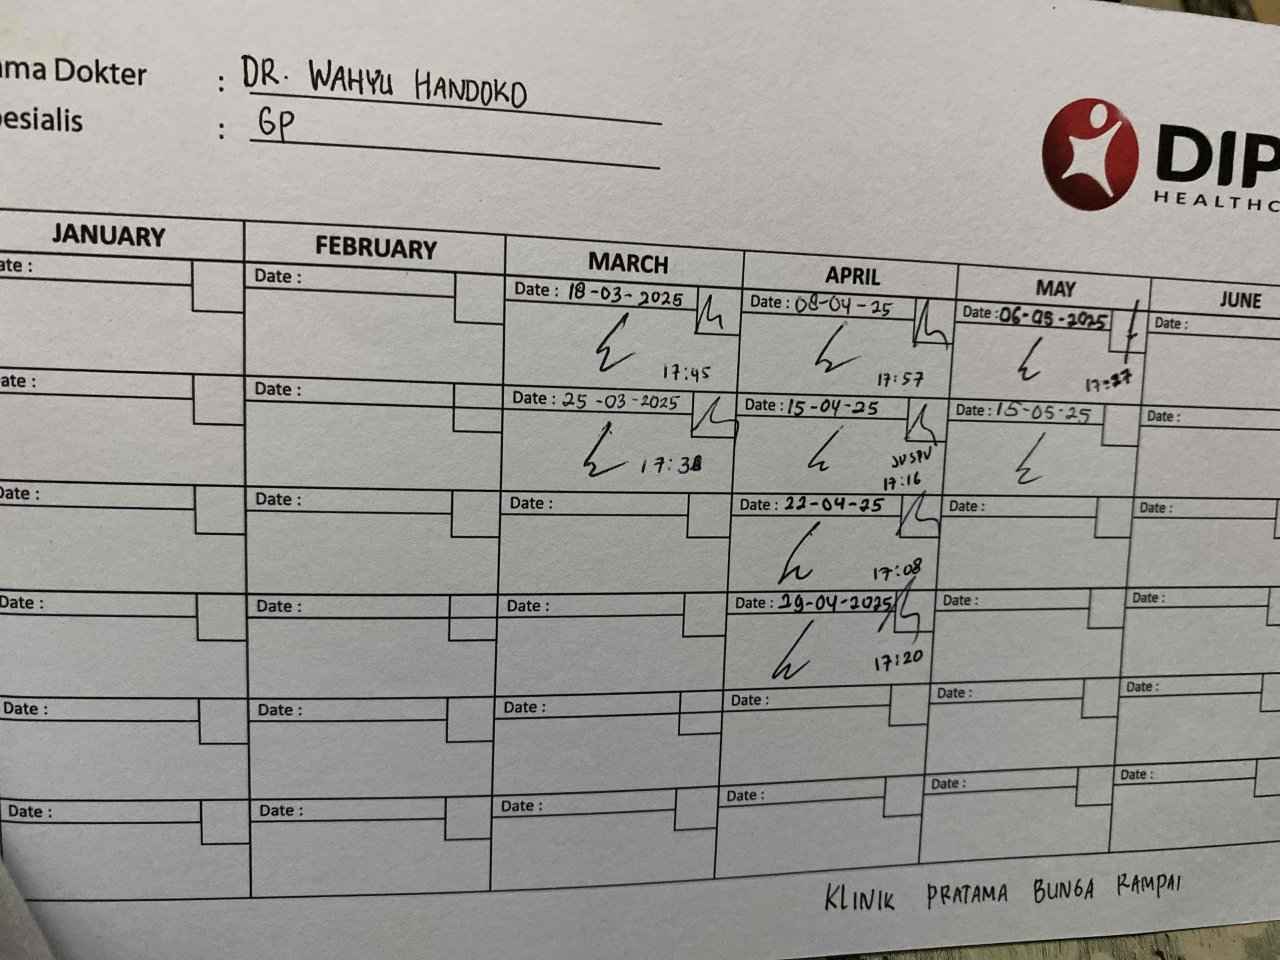 ama Dokter : DR. WAHYU HANDOKO
esialis : GP
DIP
HEALTHC
JANUARY FEBRUARY MARCH APRIL MAY JUNE
ate : Date : Date : 18-03-2025 Date : 08-04-25 Date : 06-05-2025 Date :
17:45 17:57 17:27
ate : Date : Date : 25-03-2025 Date : 15-04-25 Date : 15-05-25 Date :
17:38 JV SPV
17:16
Date : Date : Date : Date : 22-04-25 Date : Date :
17:08
Date : Date : Date : Date : 29-04-2025 Date : Date :
17:20
Date : Date : Date : Date : Date : Date :
Date : Date : Date : Date : Date : Date :
KLINIK PRATAMA BUNGA RAMPAI